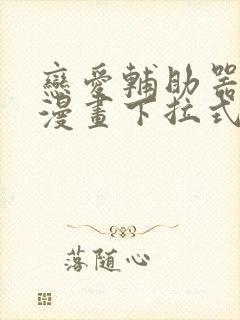 戀愛輔助器
漫畫下拉式
落随心